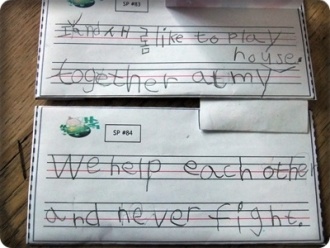 SP #83
I and 사람 like to play
house.
together at my
SP #84
We help each other
and never fight.